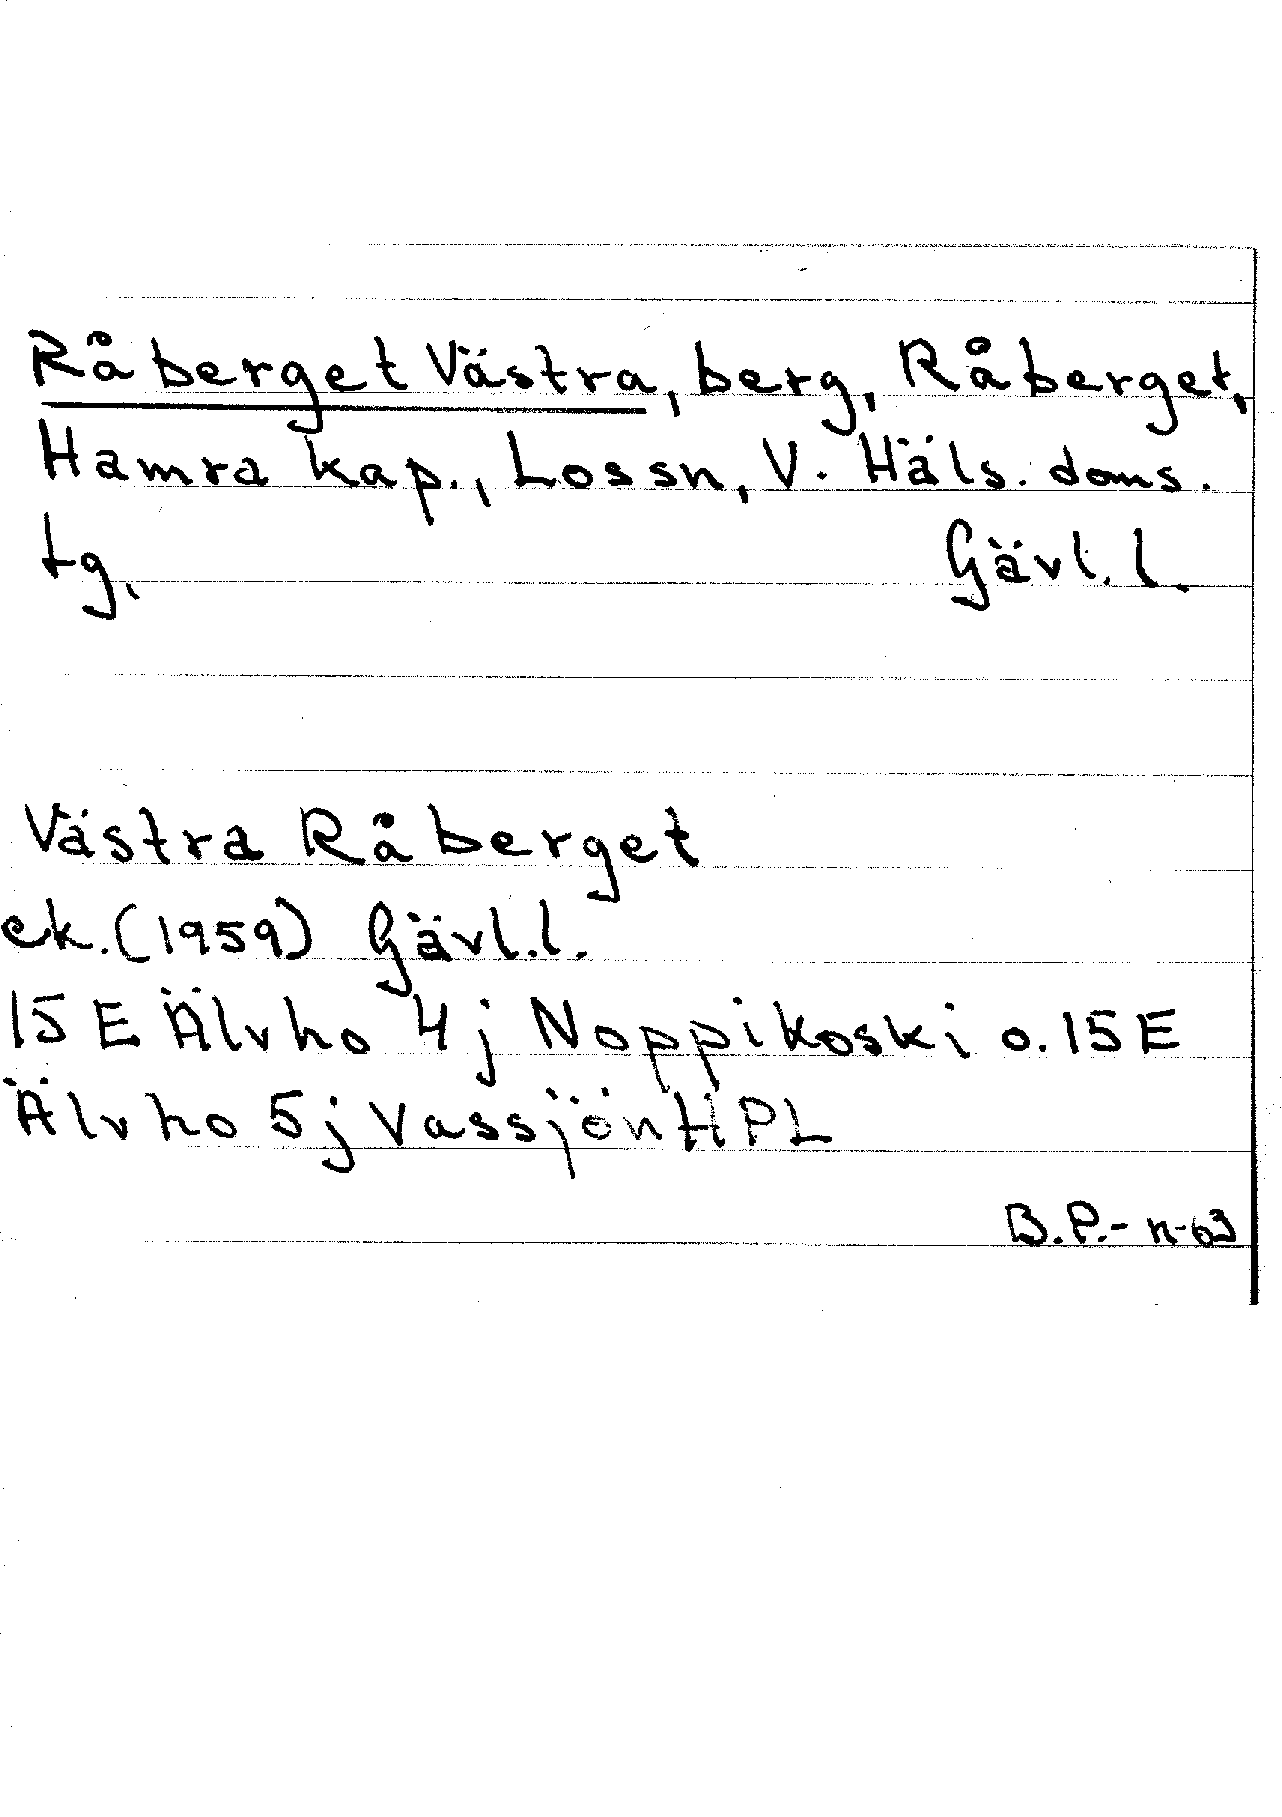 Råberget Västra, berg, Råberget,
Hamra kap., Lossn, V. Häls. doms.
tg, Gävl. l.
Västra Råberget
ek. (1959) Gävl. l.
15 E Älvho 4 j Noppikoski o. 15 E
Älvho 5 j Vassjön HPL
B.P.- n-63